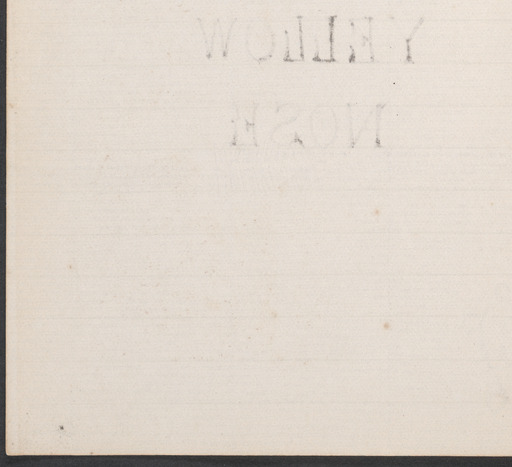 YELLOW
NOSE